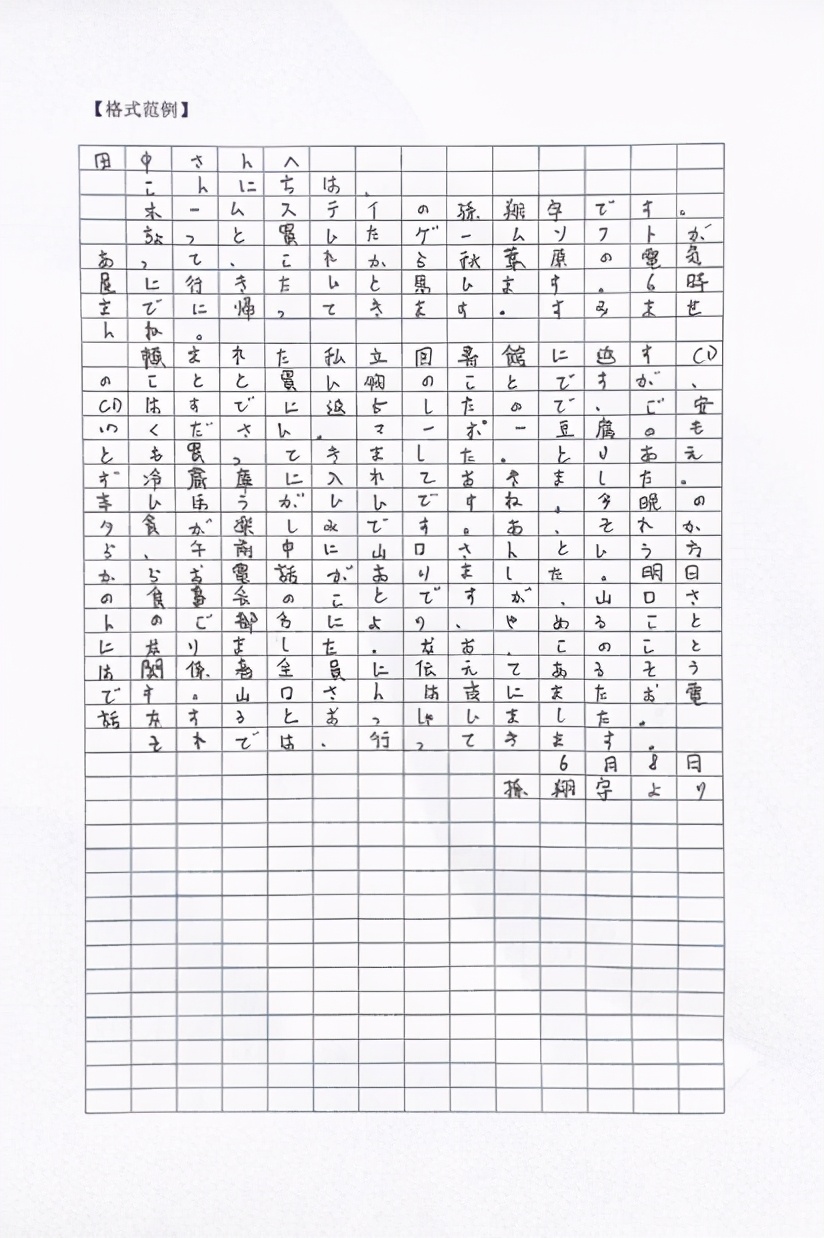 【格式范例】
田中さんへ
こんにちは、
ホームステイの孫翔宇です。
ちょっと買いたゲームソフトが
あって、これから秋葉原の電気
屋に行きたいと思います。6時
までに帰ってきます。すみませ
んね。
頼まれた私立図書館に返すCD
のことと買い物のことですが、
CDはすでに返却したので、ご安
心ください。マーボー豆腐のも
とも買ってきました。とりあえ
ず冷蔵庫に入れておきました。
辛いほうがいいですね。今晩の
夕食が楽しみです。あ、それか
ら、午前中に山口さんという方
からお電話がありました。明日
の食事会のことですが、山口さ
んのご都合により、やめること
になりました。なお、このこと
は関係者全員に伝えてあるそう
です。山口さんは夜にまたお電
話なするとおっしゃいました。
それでは、行ってきます。
6月8日
孫翔宇より